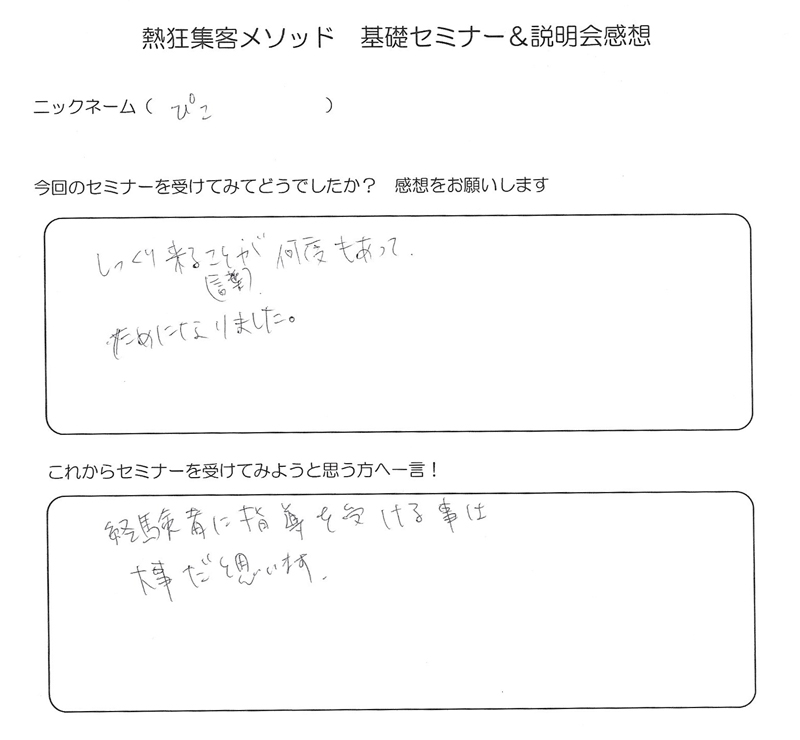 熱狂集客メソッド　基礎セミナー＆説明会感想
ニックネーム（ ぴこ ）
今回のセミナーを受けてみてどうでしたか？　感想をお願いします
しっくり来ることが何度もあって、
(言葉)
ためになりました。
これからセミナーを受けてみようと思う方へ一言！
経験者に指導を受ける事は
大事だと思います。